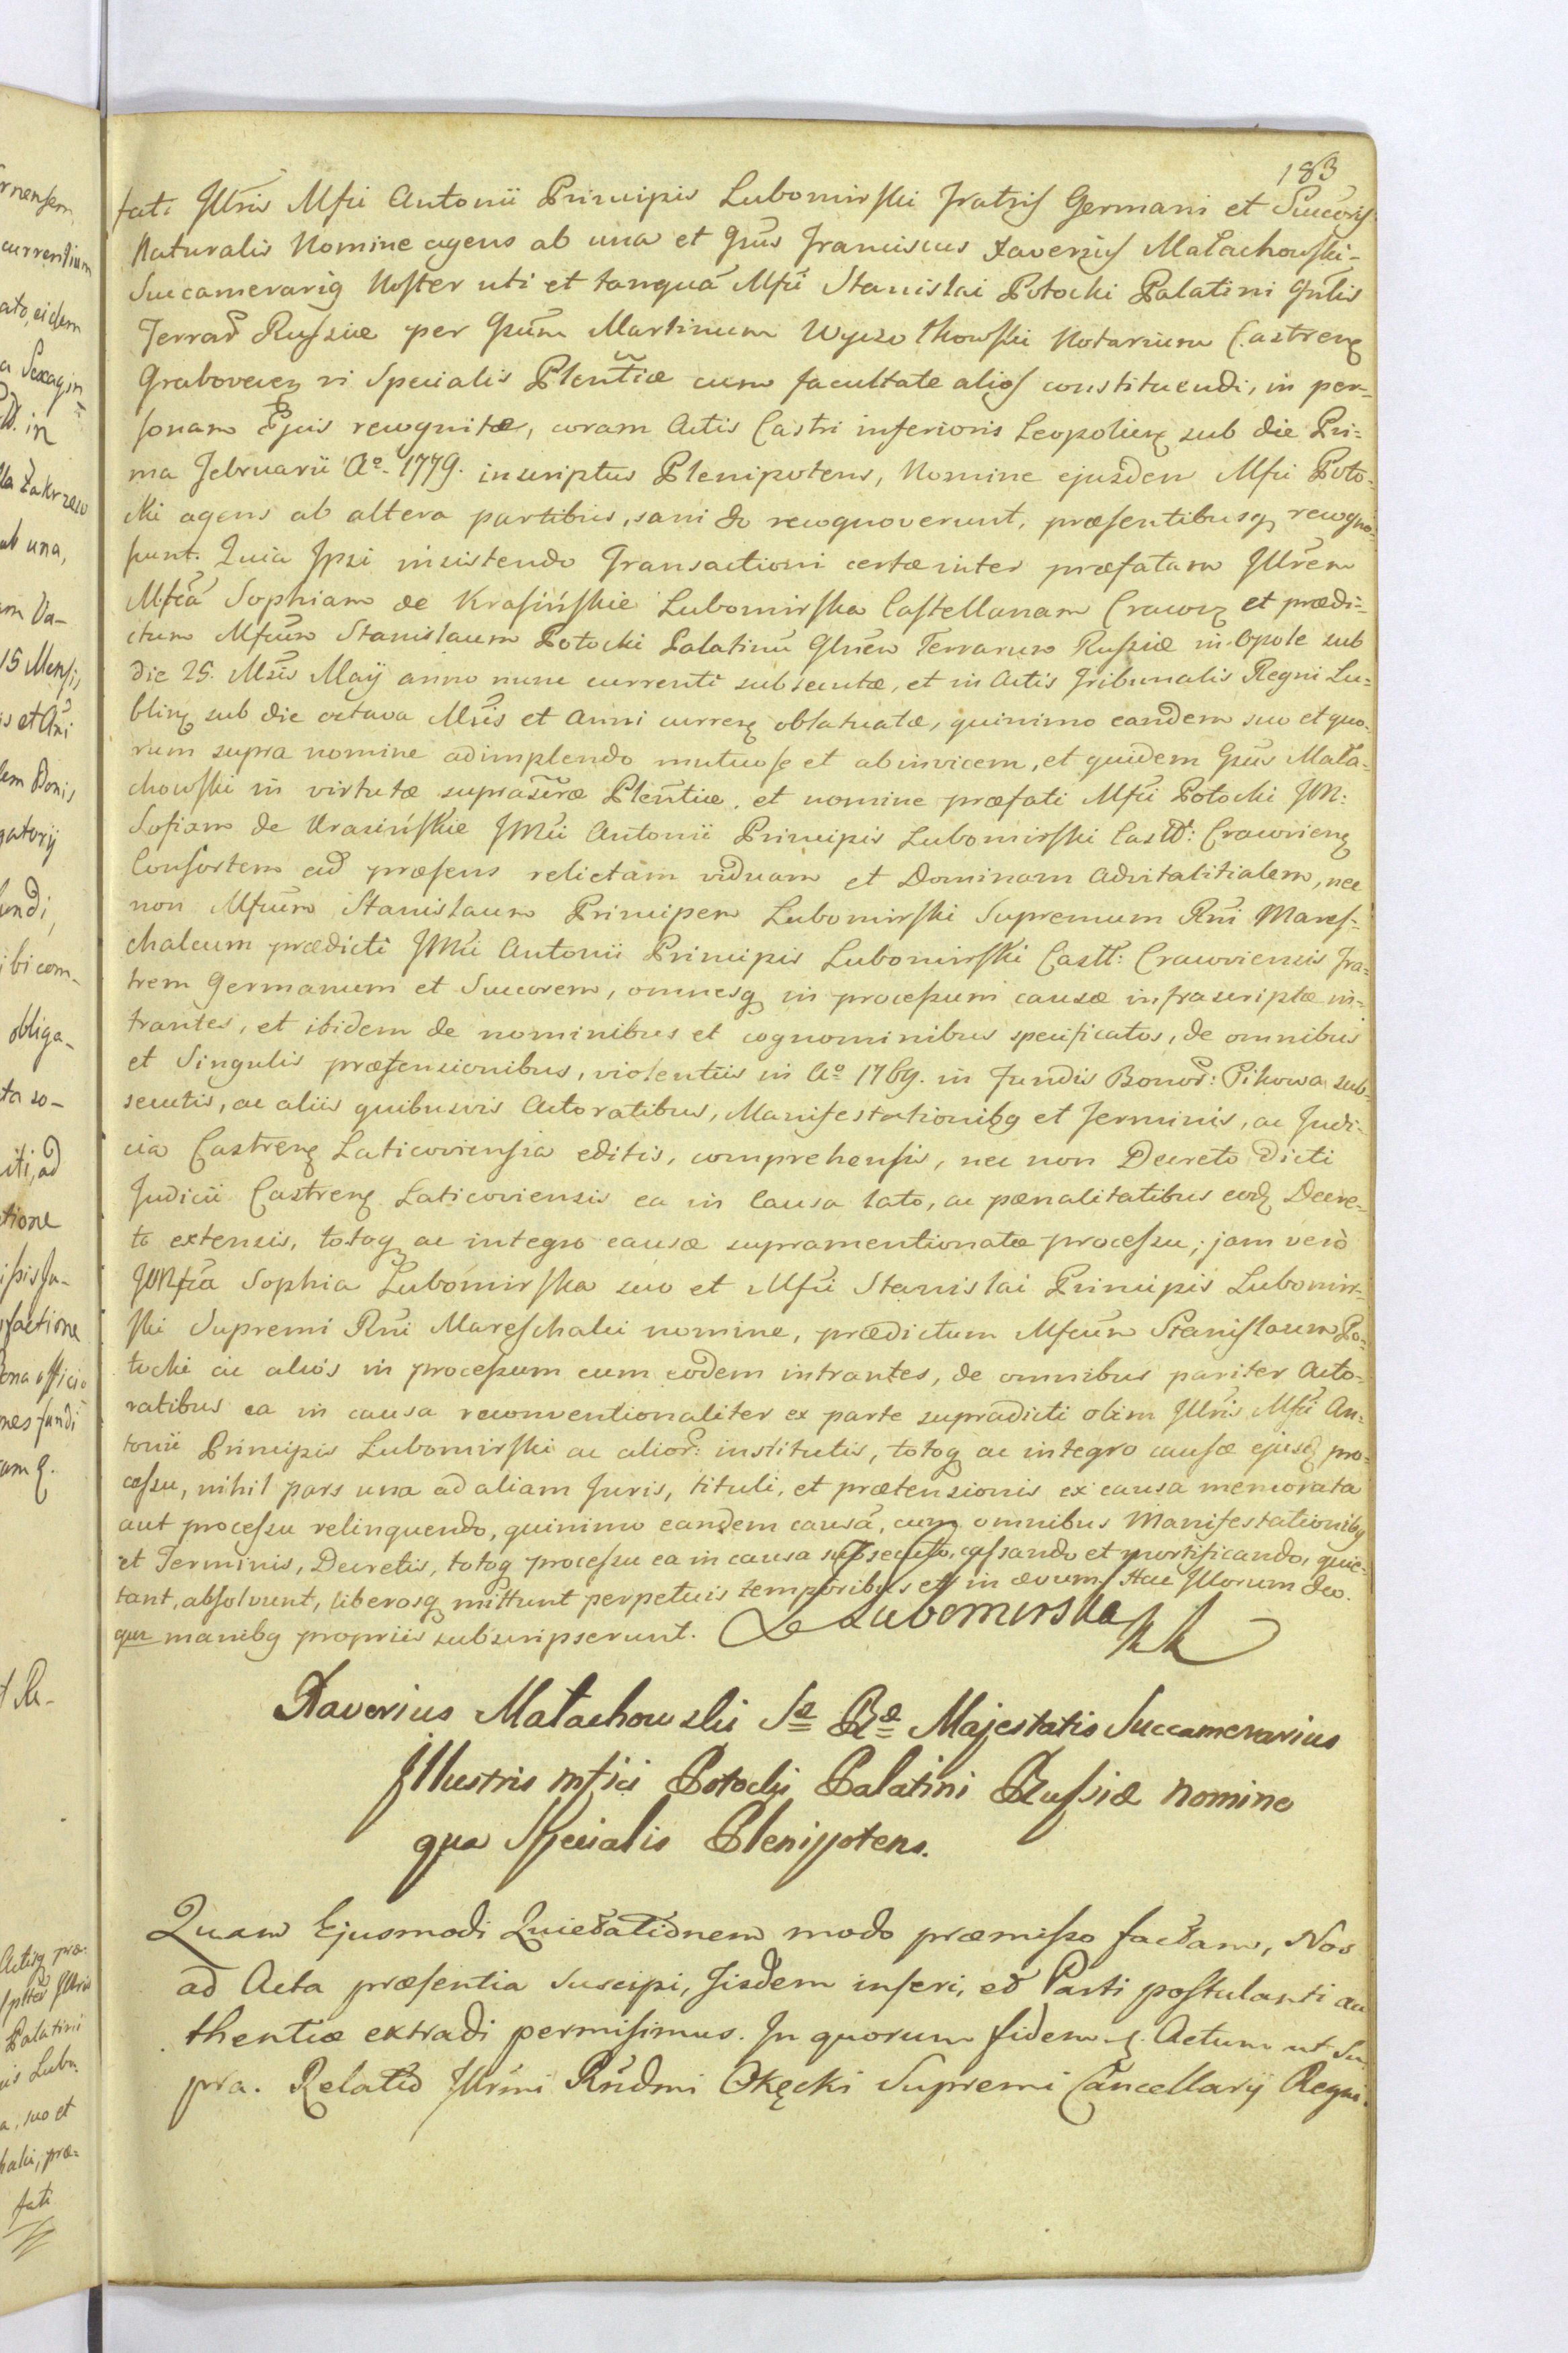 183
fati Jllris Mfci Antonii Principis Lubomirski Fratris Germani et Succoris
Naturalis Nomine agens ab una et Gnus Franciscus Xaverius Małachowski
Succamerariq Noster uti et tanquā Mfci Stanislai Potocki Palatini Gnlis
Terrar Russiæ per Gnum Martinum Wyczołkowski Notarium Castrenq
Grabovecen vi Specialis Plentiæ cum facultate alios constituendi, in per-
sonam Ejus recognitæ, coram Actis Castri inferioris Leopolienq sub die Pri-
ma Februarii Aº. 1779. inscriptus Plenipotens, Nomine ejusdem Mfci Poto-
cki agens ab altera partibus, sani do recognoverunt, præsentibusq recogno-
scunt. Quia Ipsi insistendo Transactioni certæ inter præfatam Jllrem
Mfcā Sophiam de Krasińskie Lubomirska Castellanam Cracovq et prædi-
ctum Mfcum Stanislaum Potocki Palatinū Glnem Terrarum Russiæ in Opole sub
die 25. Msis Maÿ anno nunc currenti subsecutæ, et in Actis Tribunalis Regni Lu-
blinq sub die octava Msis et Anni currenq oblatuatæ, quinimo eandem suo et quo-
rum supra nomine adimplendo mutuo se et abinvicem, et quidem Gnus Mała-
chowski in virtute suprascræ Plentiæ, et nomine præfati Mfci Potocki JM:
Sofiam de Krasińskie JMci Antonii Principis Lubomirski Castll: Cracovienq
Consortem ad præsens relictam viduam et Dominam advitalitialem, nec
non Mfcum Stanislaum Principem Lubomirski Supremum Rni Mares-
chalcum prædicti JMci Antonii Principis Lubomirski Castll: Cracoviensis Fra-
trem Germanum et Succorem, omnesq in processum causæ infrascriptæ in-
trantes, et ibidem de nominibus et cognominibus specificatos, de omnibus
et Singulis prætensionibus, violentiis in Aº 1769. in Fundis Bonor: Pikowa sub-
secutis, ac aliis quibusvis Actoratibus, Manifestationibq et Terminis, ac Judi-
cia Castrenq Laticoviensia editis, comprehensis, nec non Decreto dicti
Judicii Castrenq Laticoviensis ea in Causa lato, ac pœnalitatibus eodq Decre-
to extensis, totoq ac integro causæ supramentionatæ processu; jam vero
JMfca Sophia Lubomirska suo et Mfci Stanislai Principis Lubomir-
ski Supremi Rni Mareschalci nomine, prædictum Mfcum Stanislaum Po-
tocki ac alios in processum cum eodem intrantes, de omnibus pariter Acto-
ratibus ea in causa reconventionaliter ex parte supradicti olim Jllris Mfci An-
tonii Principis Lubomirski ac alior: institutis, totoq ac integro causæ ejusdq pro-
cessu, nihil pars una ad aliam Juris, tituli, et prætensionis ex causa memorata
aut processu relinquendo, quinimo eandem causā, cum omnibus Manifestationibq
et Terminis, Decretis, totoq processu ea in causa subsecuto, cassando et mortificando, quie-
tant, absolvunt, liberosq mittunt perpetuis temporibus et in ævum. Hac Jllorum deo.
que manibq propriis subscripserunt. Lubomirska
Xaverius Małachowski Sæ Ræ Majestatis Succamerarius
Jllustris mfici Potocki Palatini Russiæ nomine
qua Specialis Plenipotens.
Quam Ejusmodi Quietationem modo præmisso factam, Nos
ad Acta præsentia Suscipi, Jisdem inseri, et Parti postulanti au
thentice extradi permisimus. In quorum fidem q. Actum ut Su
pra. Relatio Jllrmi Rndmi Okęcki Supremi Cancellarÿ Regni.